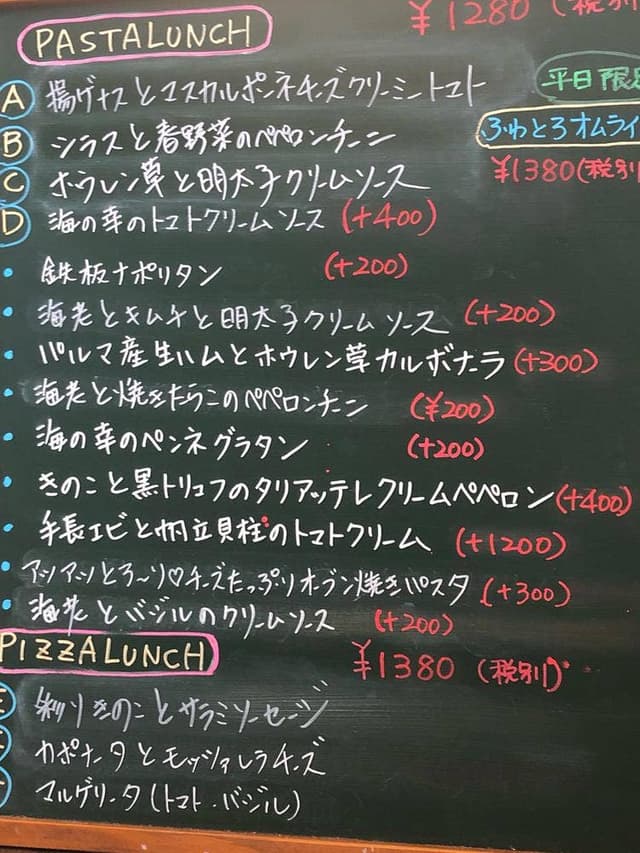 PASTALUNCH
¥1280 (税別
A 揚げナスとマスカルポーネチーズクリーミートマト
平日限定
B シラスと春野菜のペペロンチーニ
ふわとろオムライ
C ホウレン草と明太子クリームソース
¥1380(税別
D 海の幸のトマトクリームソース (+400)
・鉄板ナポリタン (+200)
・海老とキムチと明太子クリームソース (+200)
・パルマ産生ハムとホウレン草カルボナーラ (+300)
・海老と焼きたらこのペペロンチーニ (¥200)
・海の幸のペンネグラタン (+200)
・きのこと黒トリュフのタリアッテレクリームペペロン (+400)
・手長エビと帆立貝柱のトマトクリーム (+1200)
・アツアツとろ〜り♡チーズたっぷりオーブン焼きパスタ (+300)
・海老とバジルのクリームソース (+200)
PIZZALUNCH ¥1380 (税別)
きのことサラミソーセージ
カポナータとモッツァレラチーズ
マルゲリータ(トマト・バジル)